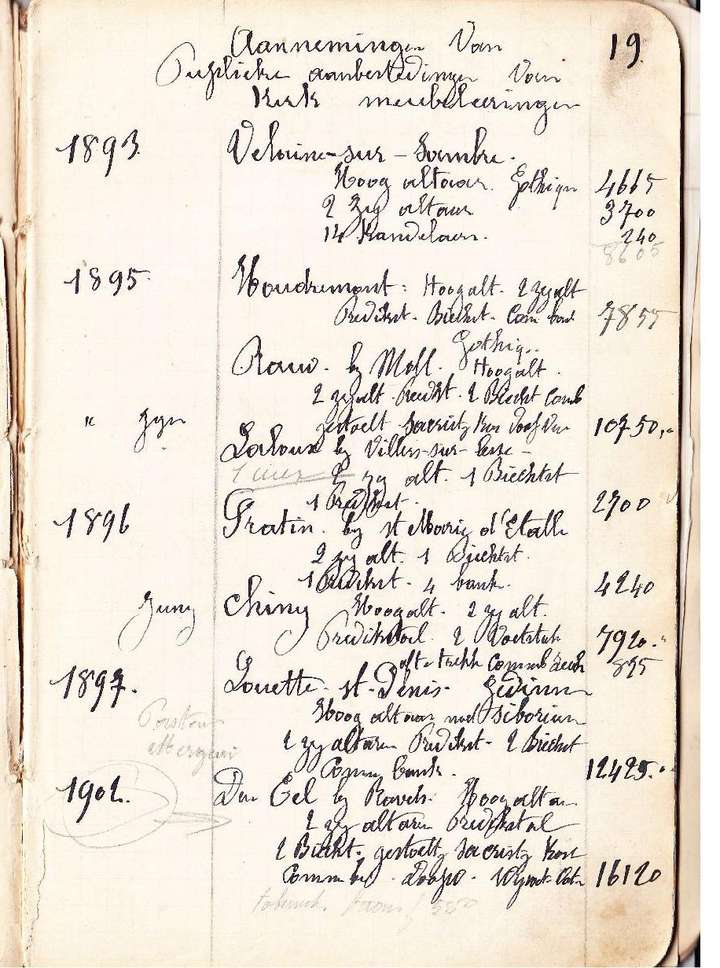 Aannemingen Van
19
Publieke aanbestedingen Van
Kerk meubeleeringen
1893. Velaine-sur-Sambre.
Hoog altaar. Gothiqu 4665
2 Zy altaar 3700
14 Kandelaers. 240
8605
1895. Houdremont: Hoogalt. 2 zyalt
Predikst. Biechst. Com bank 7855
Gothiq..
Rauw. by Moll. Hoogalt.
2 zyalt. Predkt. 2 Biecht Comb
" gestoelt sacristy Kas 10750,-
Laloux by Villers-sur-Lesse-
2 zy alt. 1 Biechtst
1 Predikst. 2700
1896 Fratin. by st Marie d'Etalle
2 zy alt. 1 Biechtst.
1 Predikst. 4 bank. 4240
Juny Chiny Hoogalt. 2 zy alt.
Predikstoel. 2 7920.-
Comm 895
1897. Louette-st-Denis- Gedinne
Hoog altaar met Siborium
2 zy altaren Predikst- 2 Biechst
Comm bank. 12425.-
1902. Den Eel by Ravels. Hoogaltaar
2 zy altaren Predikstoel
2 Biecht. gestoelt, sacristy Kast
Comm bk. Doopv. 16120
500